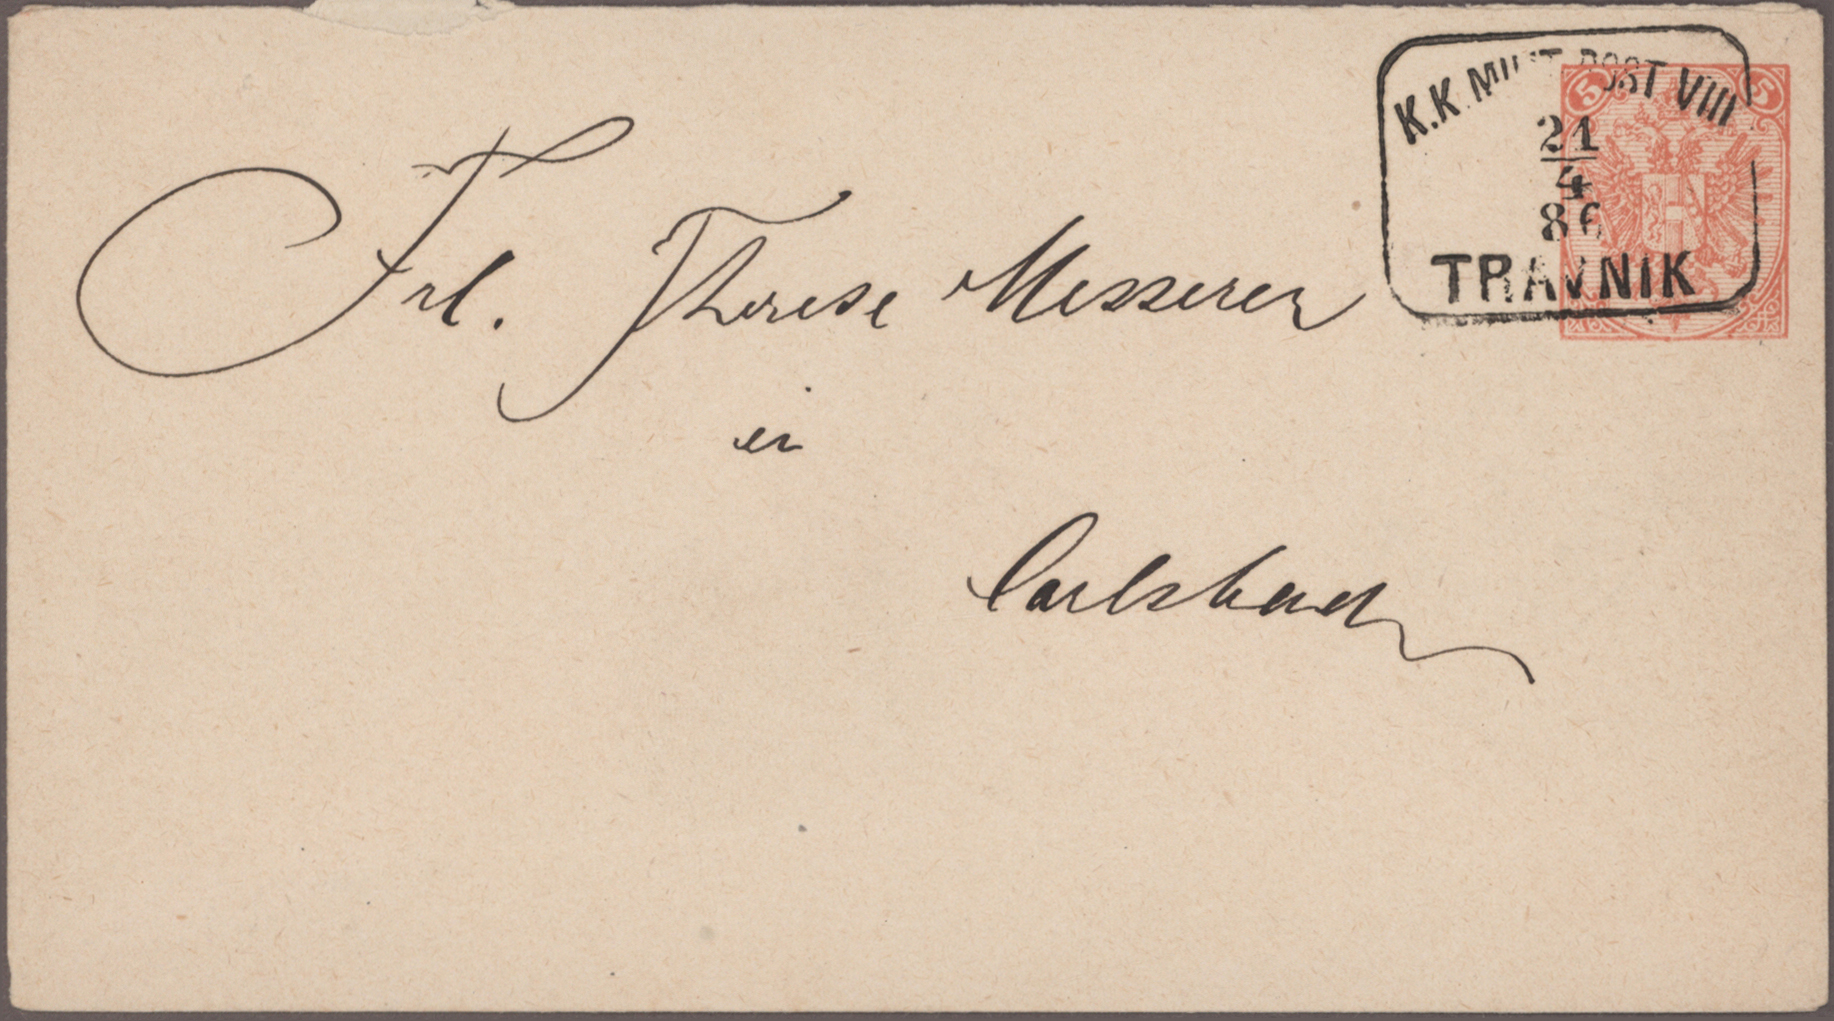 K.K. MILIT. POST VIII
5 5
21
4
86
TRAVNIK
Frl. Therese Messerer
in
Carlsbad